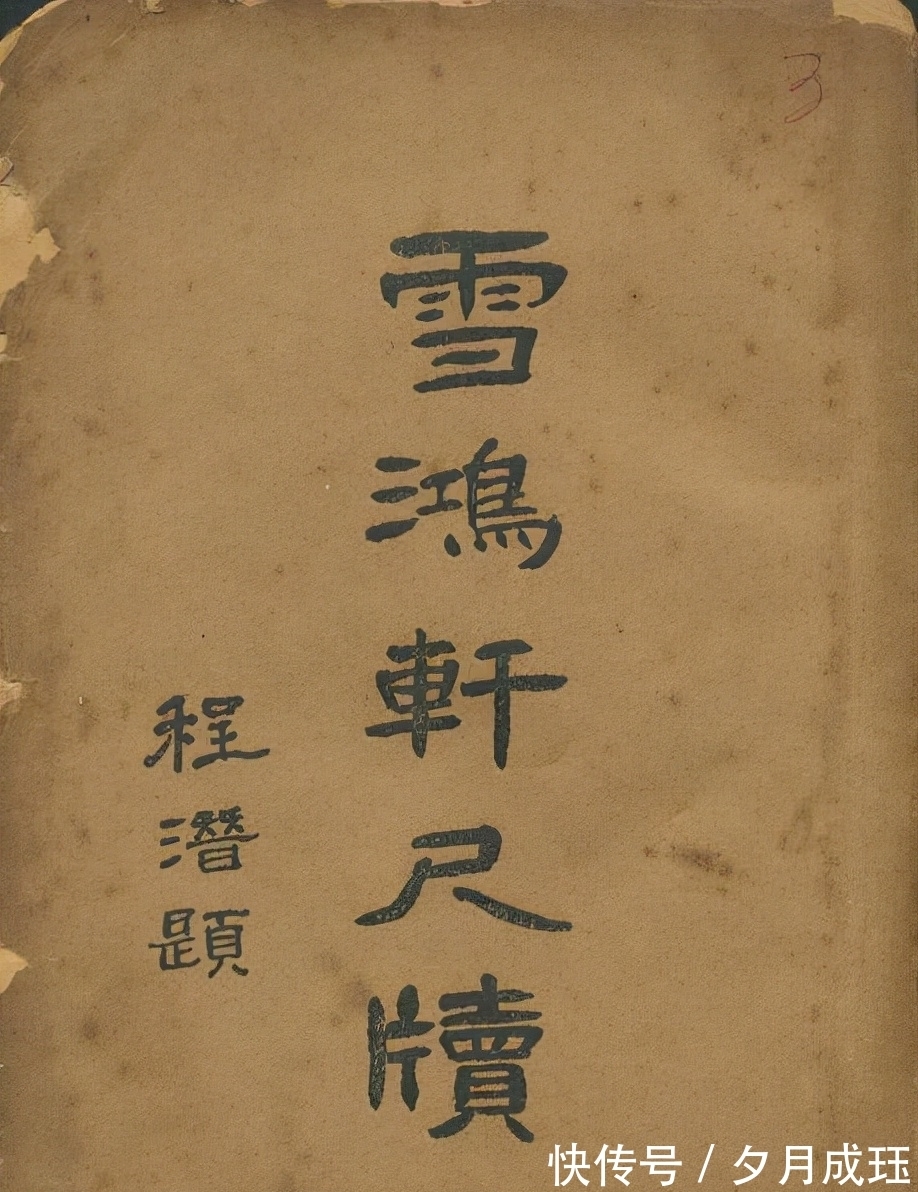 雪鴻軒尺牘
程潛題
3
快传号 / 夕月成珏